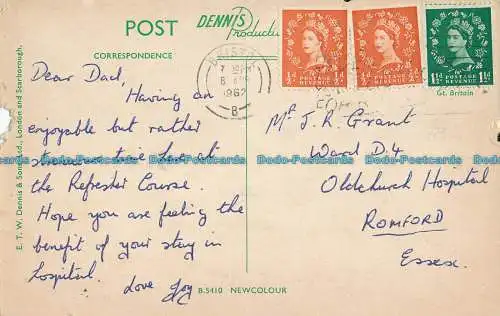 POST
DENNIS
Productions
CORRESPONDENCE
Dear Dad,
Having an
enjoyable but rather
strenuous time here at
the Refresher Course.
Hope you are feeling the
benefit of your stay in
hospital.
Love Joy
E. T. W. Dennis & Sons, Ltd., London and Scarborough.
B.5410 NEWCOLOUR
1962
B
½d ½d
POSTAGE
REVENUE
½d ½d
POSTAGE
REVENUE
1½d 1½d
POSTAGE
REVENUE
Gt. Britain
Mr J. R. Grant
Ward D.4
Oldchurch Hospital
ROMFORD
Essex.
Dodo-Postcards Dodo-Postcards Dodo-Postcards Dodo-Postcards